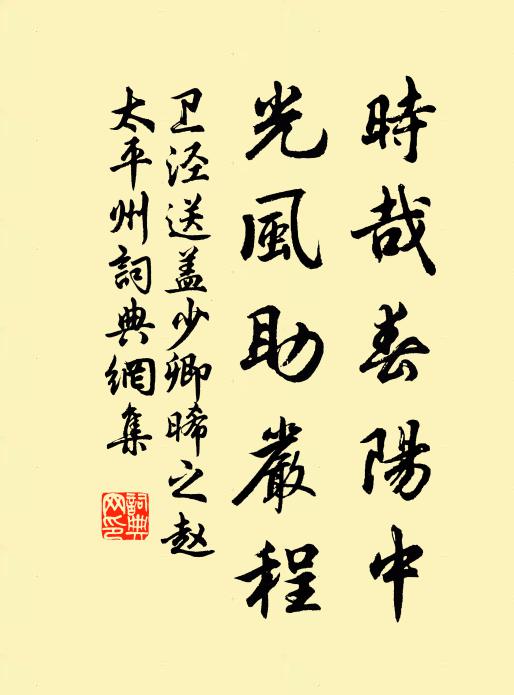 時哉春陽中
光風助嚴程
卫泾送盖少卿晞之赵
太平州詞典網集
詞典網印